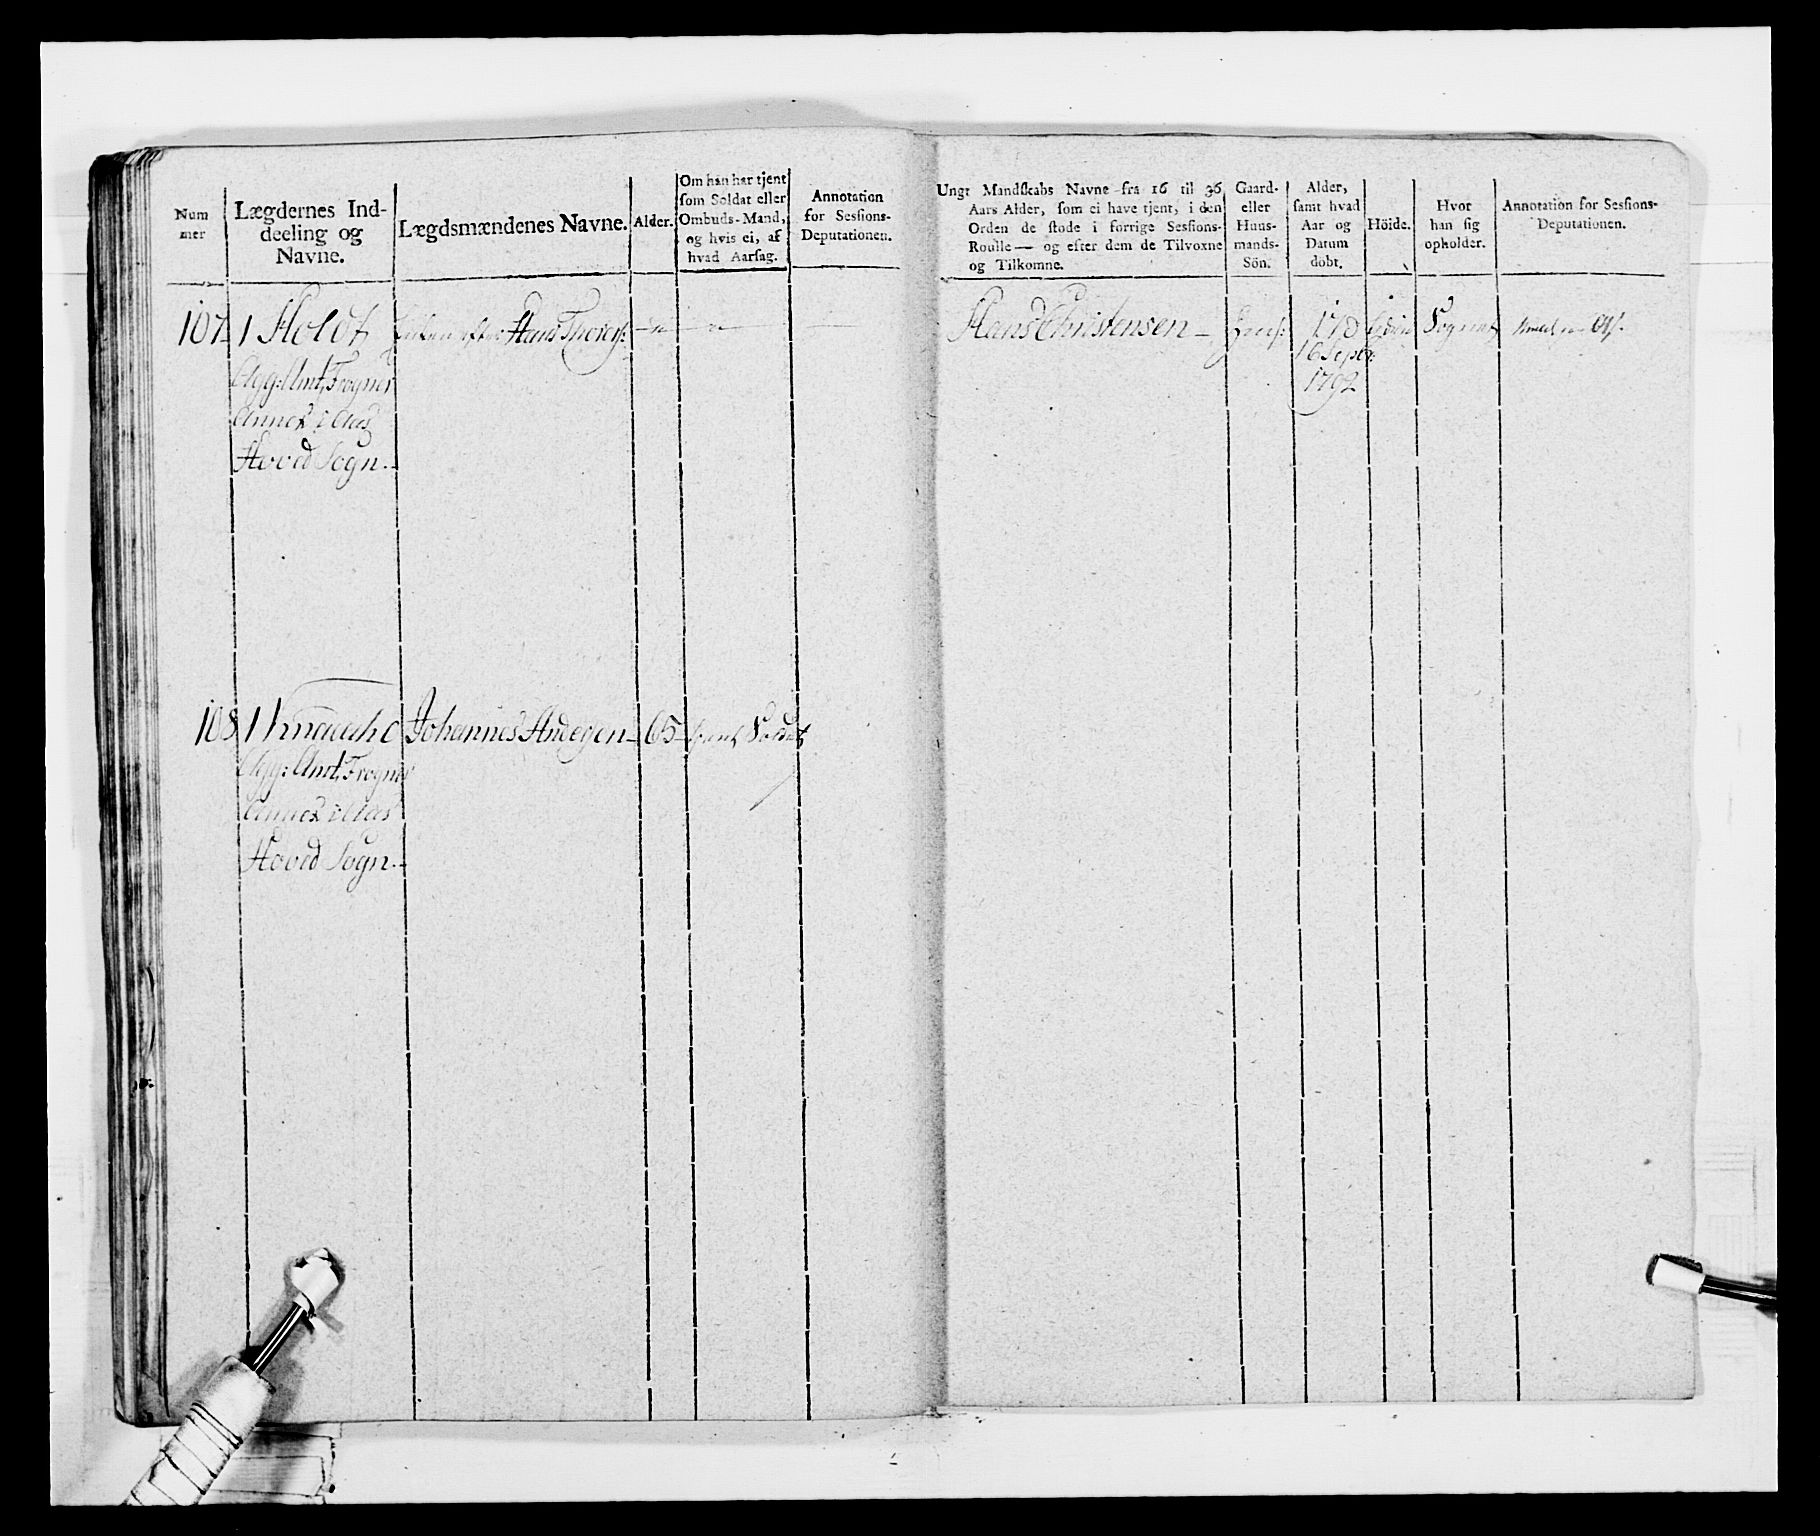 Num
mer
Lægdernes Ind-
deeling og
Navne.
Lægdsmændenes Navne.
Alder.
Om han har tjent
som Soldat eller
Ombuds-Mand,
og hvis ei, af
hvad Aarsag.
Annotation
for Sessions-
Deputationen.
Ungt Mandskabs Navne fra 16 til 36
Aars Alder, som ei have tjent, i den
Orden de stode i forrige Sessions-
Roulle — og efter dem de Tilvoxne
og Tilkomne.
Gaard-
eller
Huus-
mands-
Sön.
Alder,
samt hvad
Aar og
Datum
döbt.
Höide.
Hvor
han sig
opholder.
Annotation for Sessions-
Deputationen.
107 1 Holdt Enken efter Hans Thorers: Hans Christensen Sognet
Agg: Amt, Frogner 16 Septbr:
Annex i Aas 1792
Hoved Sogn.
108 1 Johannes Andersen 65 tient Soldat
Agg: Amt, Frogner
Annex i Aas
Hoved Sogn.